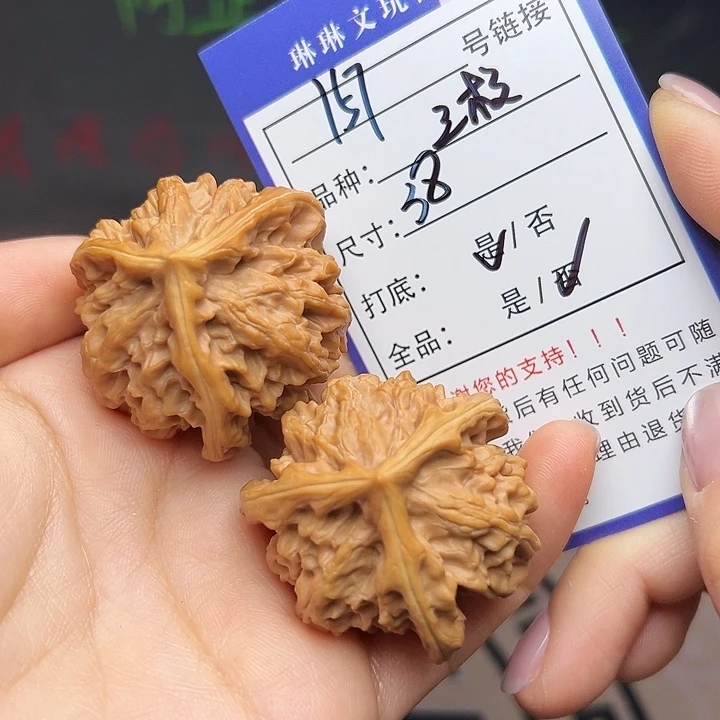 琳琳文玩
157 号链接
品种: 三棱
尺寸: 38
打底: 是/否
全品: 是/否
谢您的支持!!!
货后有任何问题可随
收到货后不满
理由退货